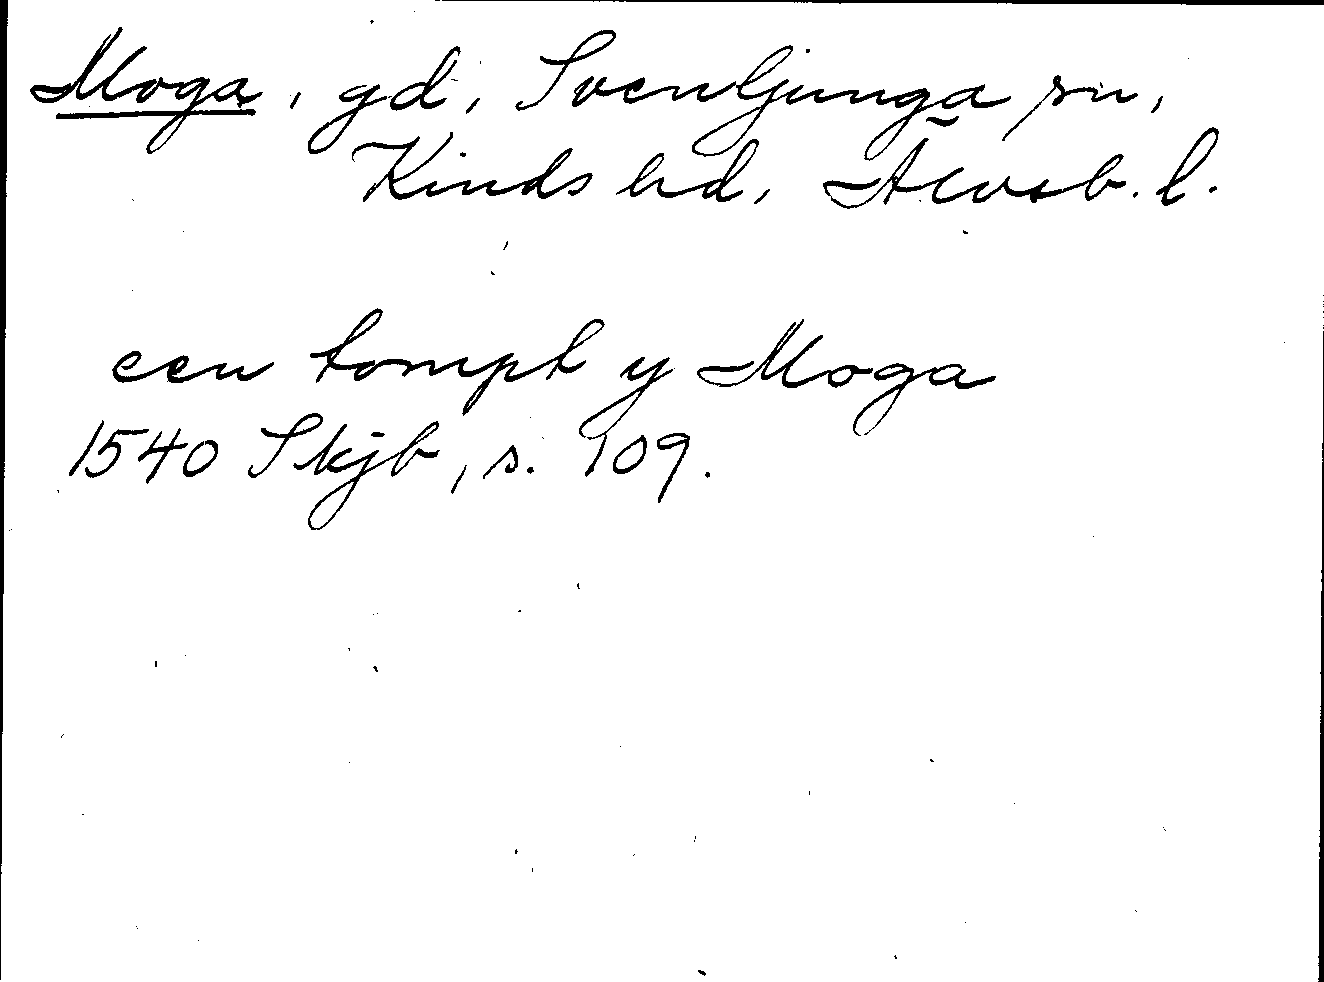 Moga, gd, Svenljunga sn,
Kinds hd, Älvsb. l.
een tompt y Moga
1540 Skjb, s. 109.